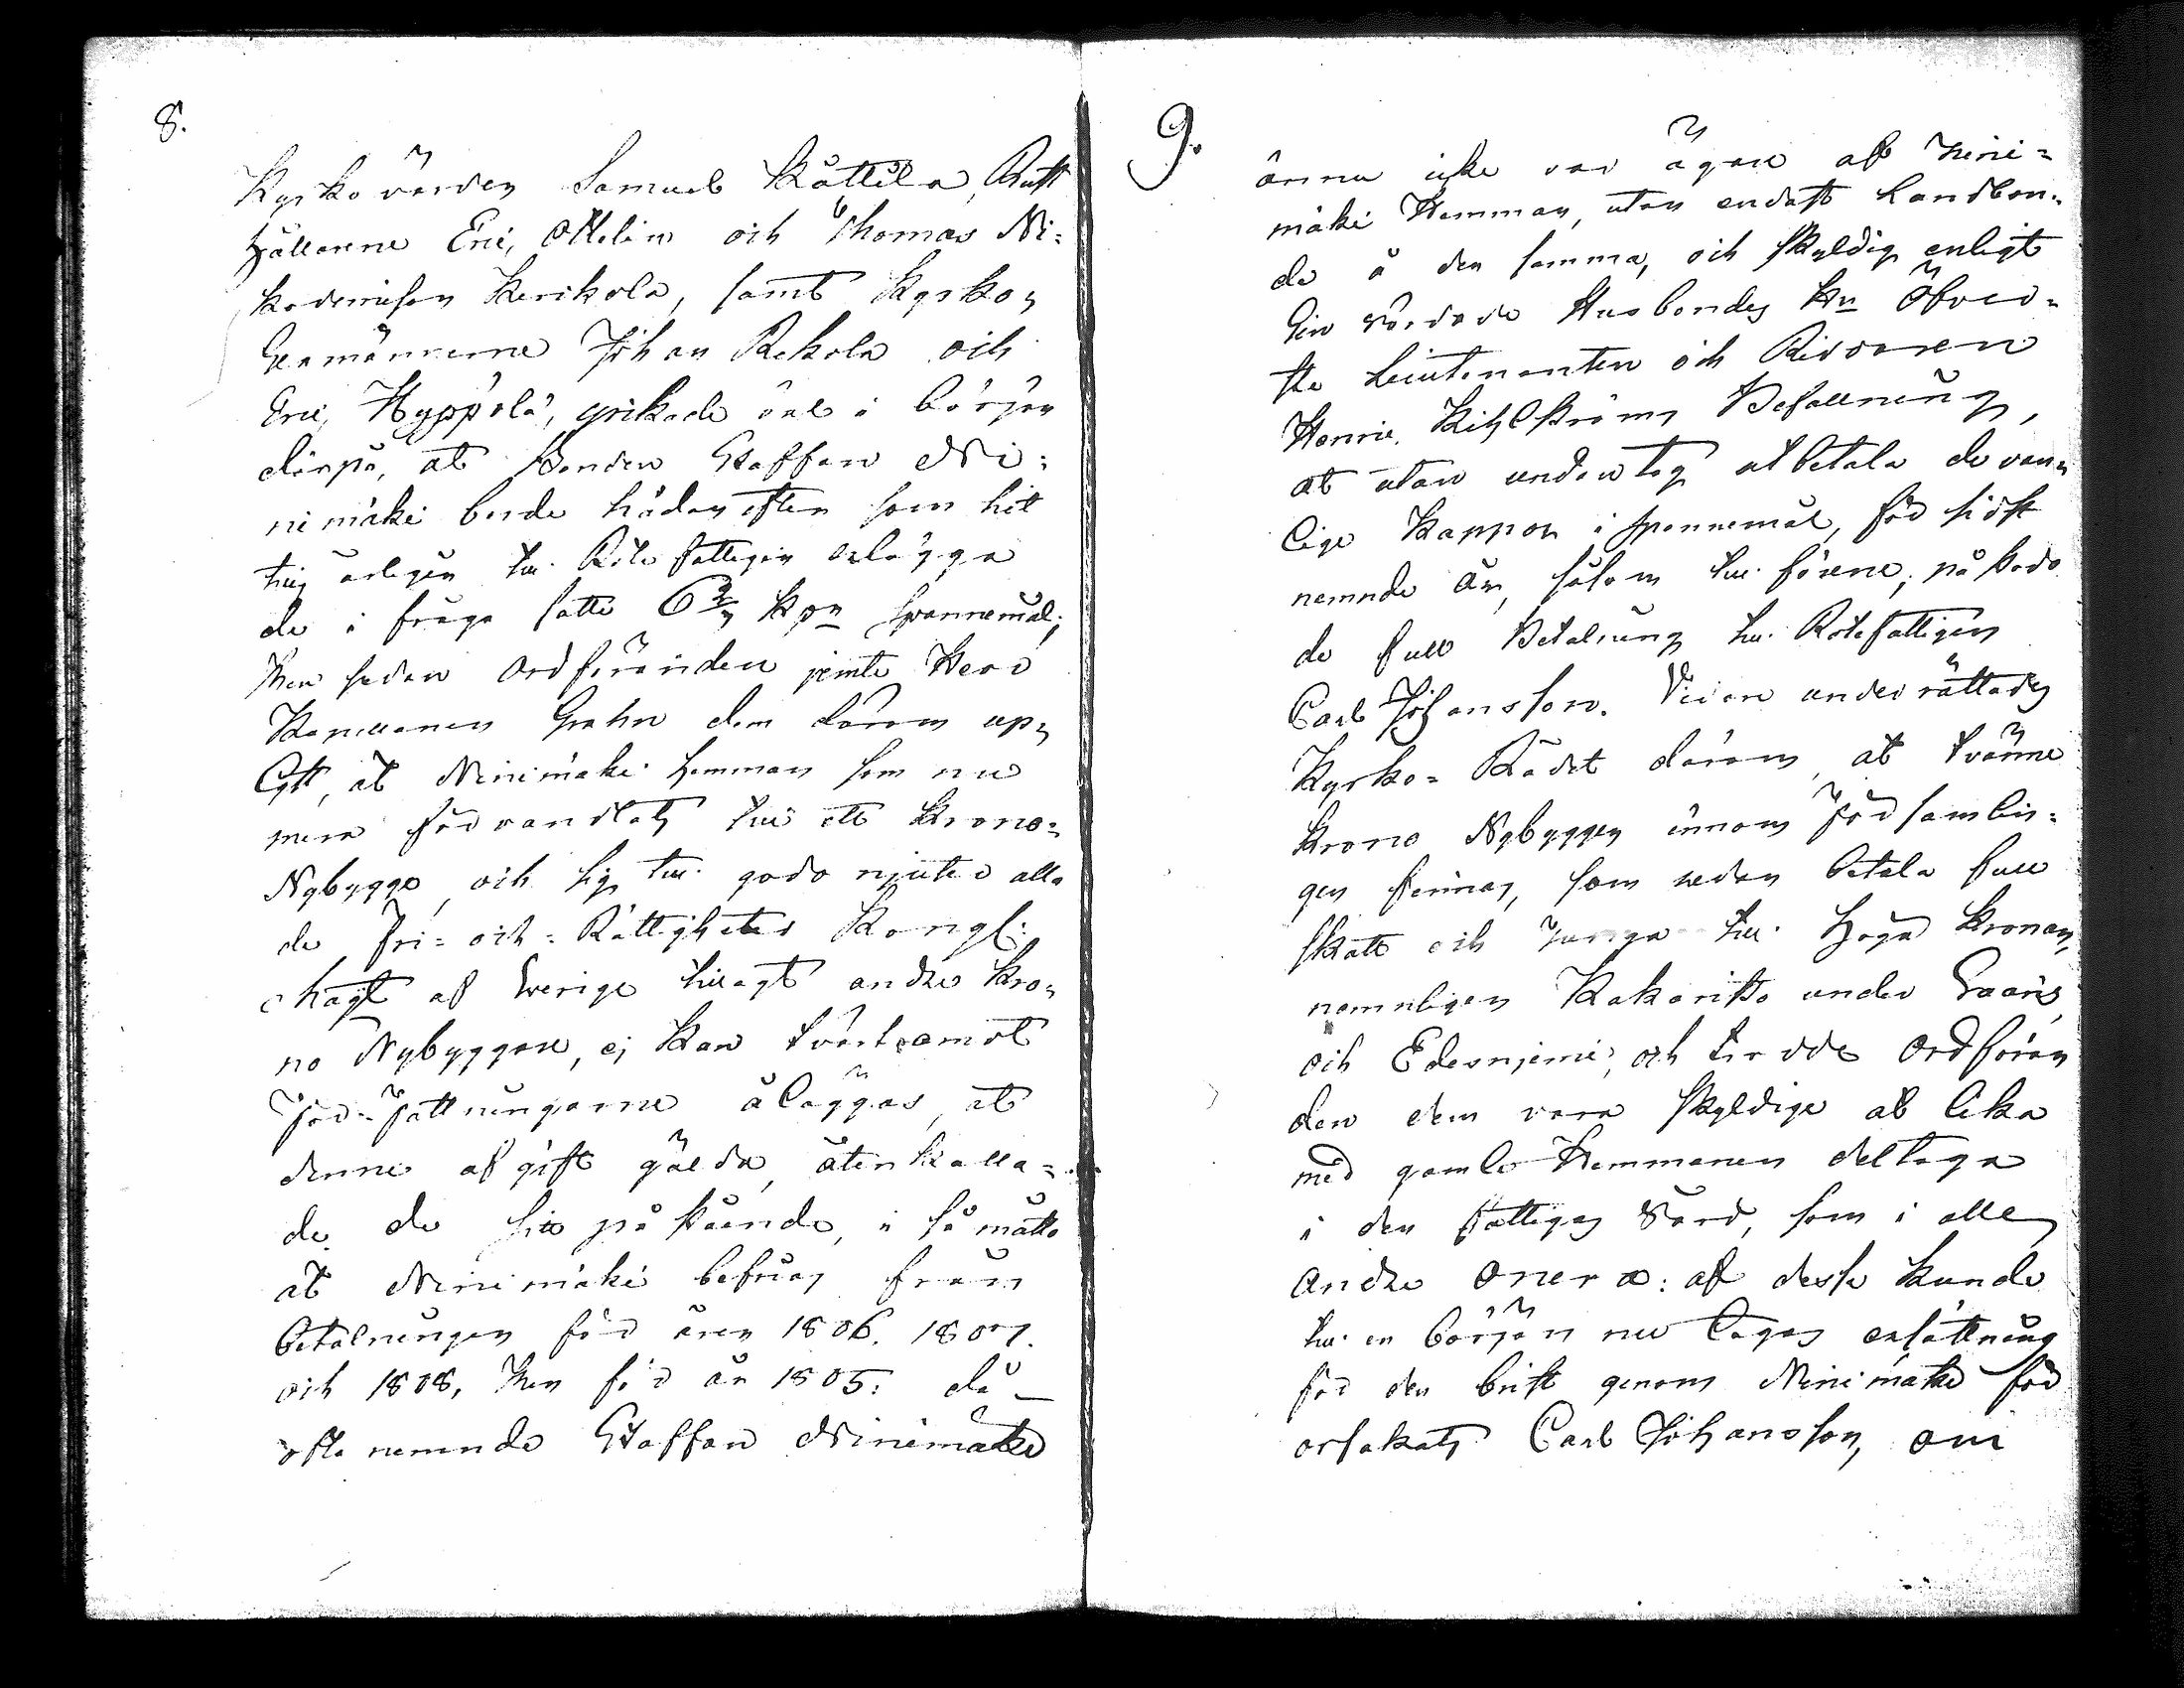 8.
Kyrkovärden Samuel Kåttila, Rust
hållarne Eric Ollelin och Thomas Ni=
kodemison Kerikola, samt Kyrko=
Hemännerne Johan Rekola och
Eric Hyppölä, yrkade väl i början
därpå, at Bonden Staffan Ni=
nimäki borde hädanefter som hit
til årligen til Rotefattigen erlägga
de i fråga satte 6 2/3 kpr Spannemål;
Men sedan Ordföranden jemte Herr
Kapellanen Grahn dem därom up=
lyst, at Ninimäki hemman som nu
mera förvandlats til ett Krono=
Nybygge, och sig til godo njuter alla
de Fri= och= Rättigheter Kongl:
Majt af Sverige tillagt andre Kro=
no Nybyggare, ej kan tvärt emot
Författningarne åläggas, at
denne afgift gälda, återkalla=
de de sitt påstående, i så måtto
at Ninimäki befrias från
betalningen för åren 1806. 1807.
och 1808, Men för år 1805: då
ofta nemnde Staffan Ninimäki
9.
ännu icke var ägare af Nini=
mäki Hemman, utan endast Landbon=
de å den samma, och skyldig enligt
sin vördade Husbondes Hr Öfver=
ste Lieutenanten och Riddaren
Henric Kihlströms Befallning,
at utan undantag utbetala de van=
lige Kappor i spannemål, för sidst
nemnde år, såsom til förene, påstod
de full Betalning til Rotefattigen
Carl Johansson. Vidare underrättades
Kyrko= Rådet därom, at tvänne
Krono Nybyggen innom Församlin=
gen finnas, som redan betala full
skatt och tunga til Höga Kronan,
nemnligen Kakarisko under
och Edesnjemi, och trodde Ordföran
den dem vara skyldige at lika
med gamle Hemmanen deltaga
i den fattigas Vård, som i alle
andre Onera: af desse kunde
til en början nu tagas ersättning
för den brist genom Ninimäki för
orsakats Carl Johansson, om